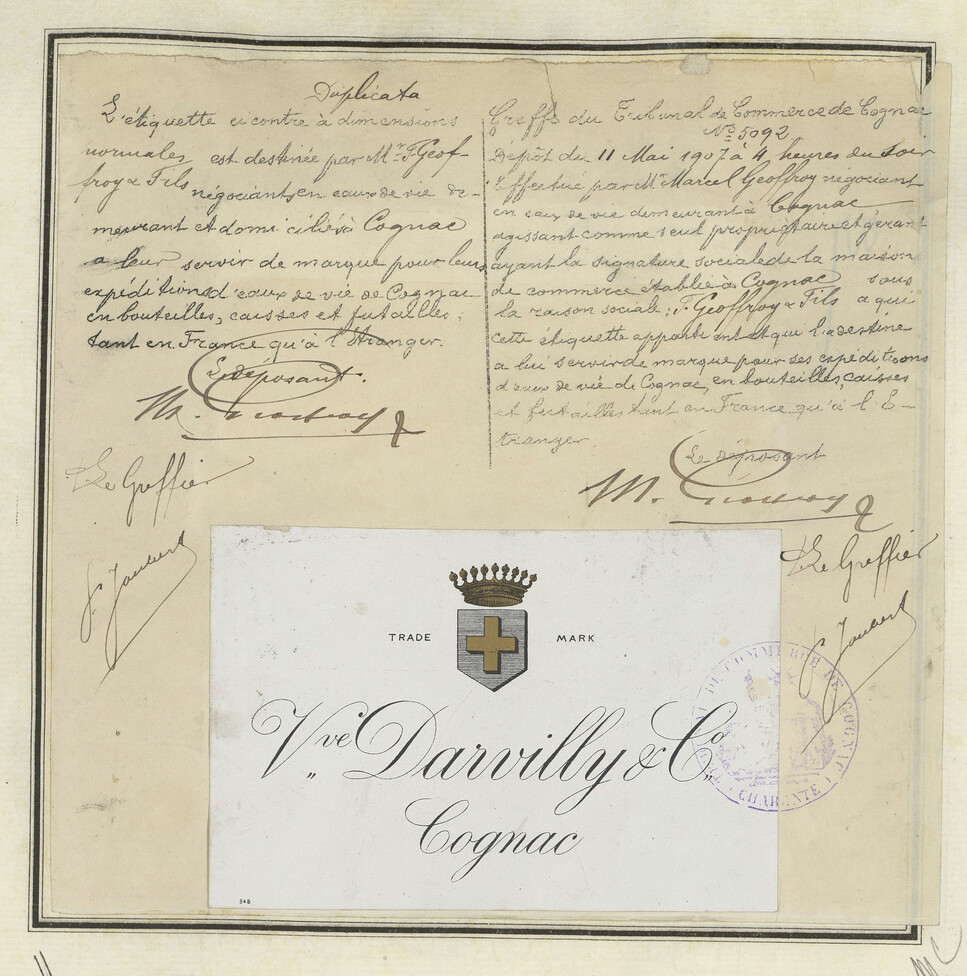 Duplicata
L'étiquette ci contre à dimensions
normales est destinée par Mr F. Geof-
froy & Fils négociants en eaux de vie de-
meurant et domiciliés à Cognac
a leur servir de marque pour leurs
expéditions d'eaux de vie de Cognac
en bouteilles, caisses et futailles;
tant en France qu'à l'Etranger.
Le déposant.
M. Geoffroy
Le Greffier
Joubert
Greffe du Tribunal de Commerce de Cognac
No 5092
Dépôt du 11 Mai 1907 à 4 heures du Soir
Effectué par Mr Marcel Geoffroy négociant
en eaux de vie demeurant à Cognac
agissant comme seul propriétaire et gérant
ayant la signature sociale de la maison
de commerce établie à Cognac sous
la raison sociale: F. Geoffroy & Fils a qui
cette étiquette appartient et qui la destine
a lui servir de marque pour ses expéditions
d'eaux de vie de Cognac, en bouteilles, caisses
et futailles tant en France qu'à l'E-
tranger.
Le déposant
M. Geoffroy
Le Greffier
Joubert
TRADE MARK
Vve Darvilly & Co
Cognac
848
TRIBUNAL DE COMMERCE DE COGNAC
CHARENTE